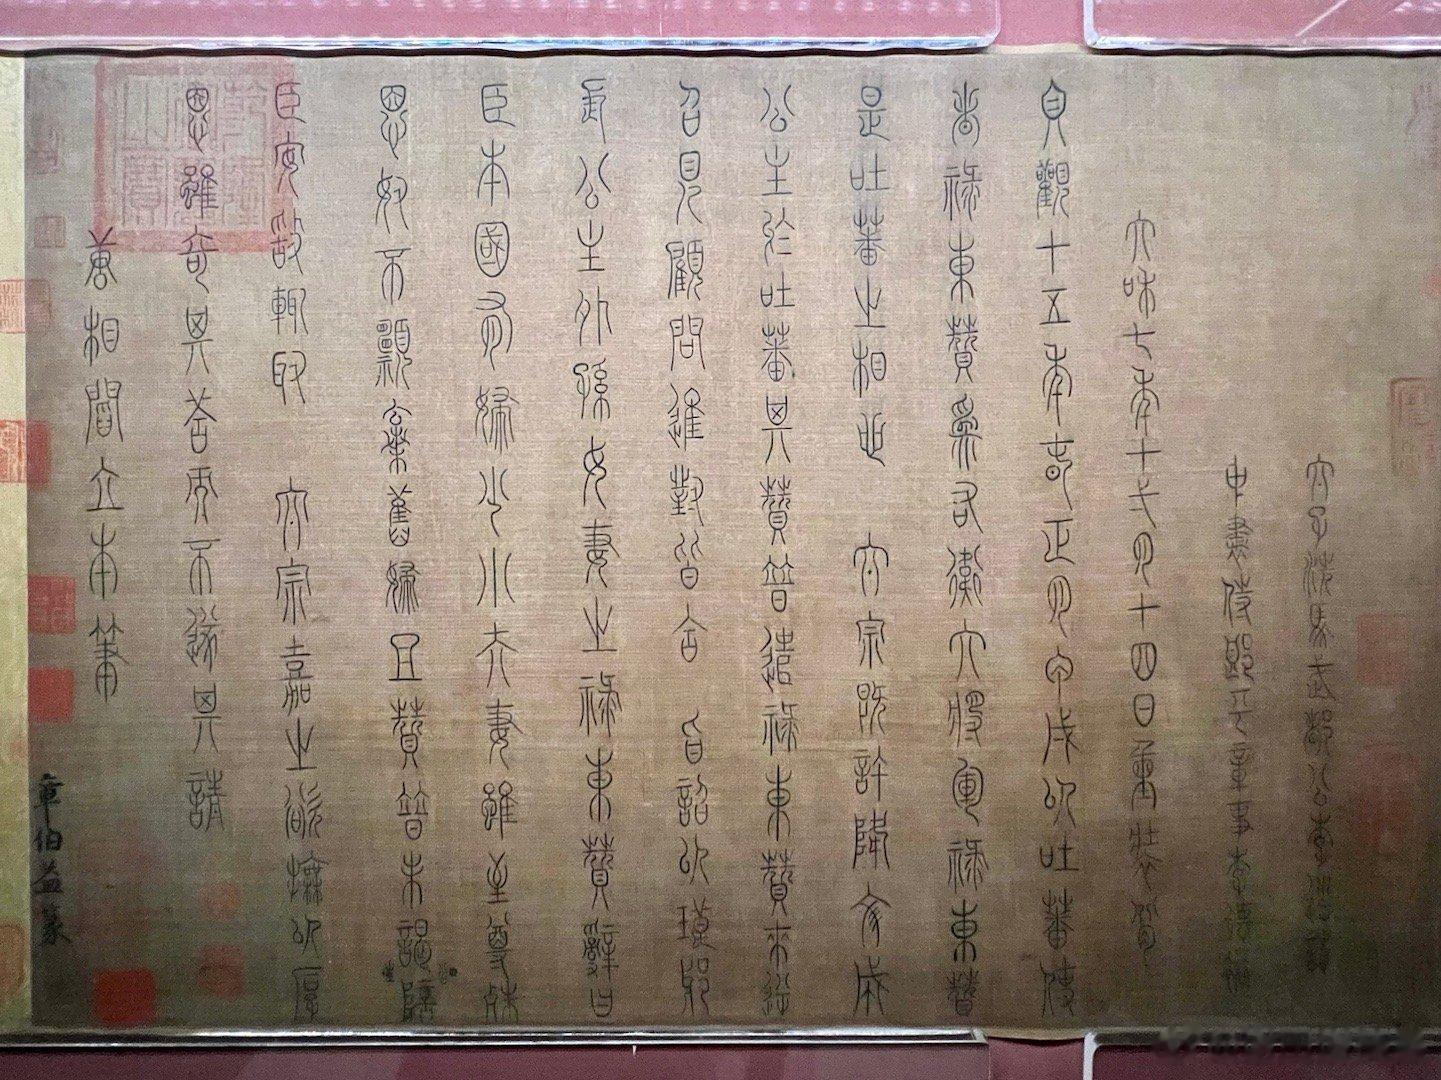 太子洗馬武都公李道誌
中書侍郎平章事李德裕
大和七年十一月十四日重裝背
貞觀十五年春正月甲戌以吐蕃使
者祿東贊為右衛大將軍祿東贊
是吐蕃之相也 太宗既許降文成
公主於吐蕃其贊普遣祿東贊來逆
召見顧問進對皆合 旨詔以琅邪
長公主外孫女妻之祿東贊辭曰
臣本國有婦少小夫妻雖至尊殊
恩奴不願棄舊婦且贊普未謁陪
臣安敢輒取 太宗嘉之欲撫以厚
恩雖奇其答而不遂其請
唐相閻立本筆
章伯益篆